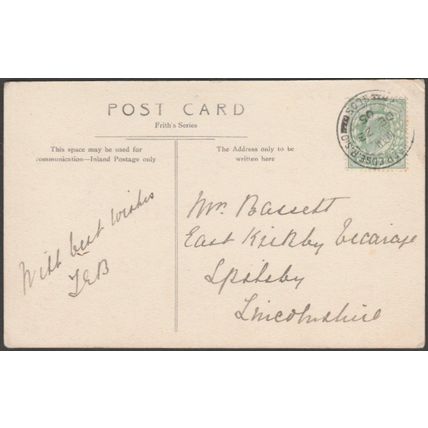 POST CARD
Frith's Series
This space may be used for
communication—Inland Postage only
The Address only to be
written here
With best wishes
Mr. Bassett
East Kirkby Vicarage
Spilsby
Lincolnshire